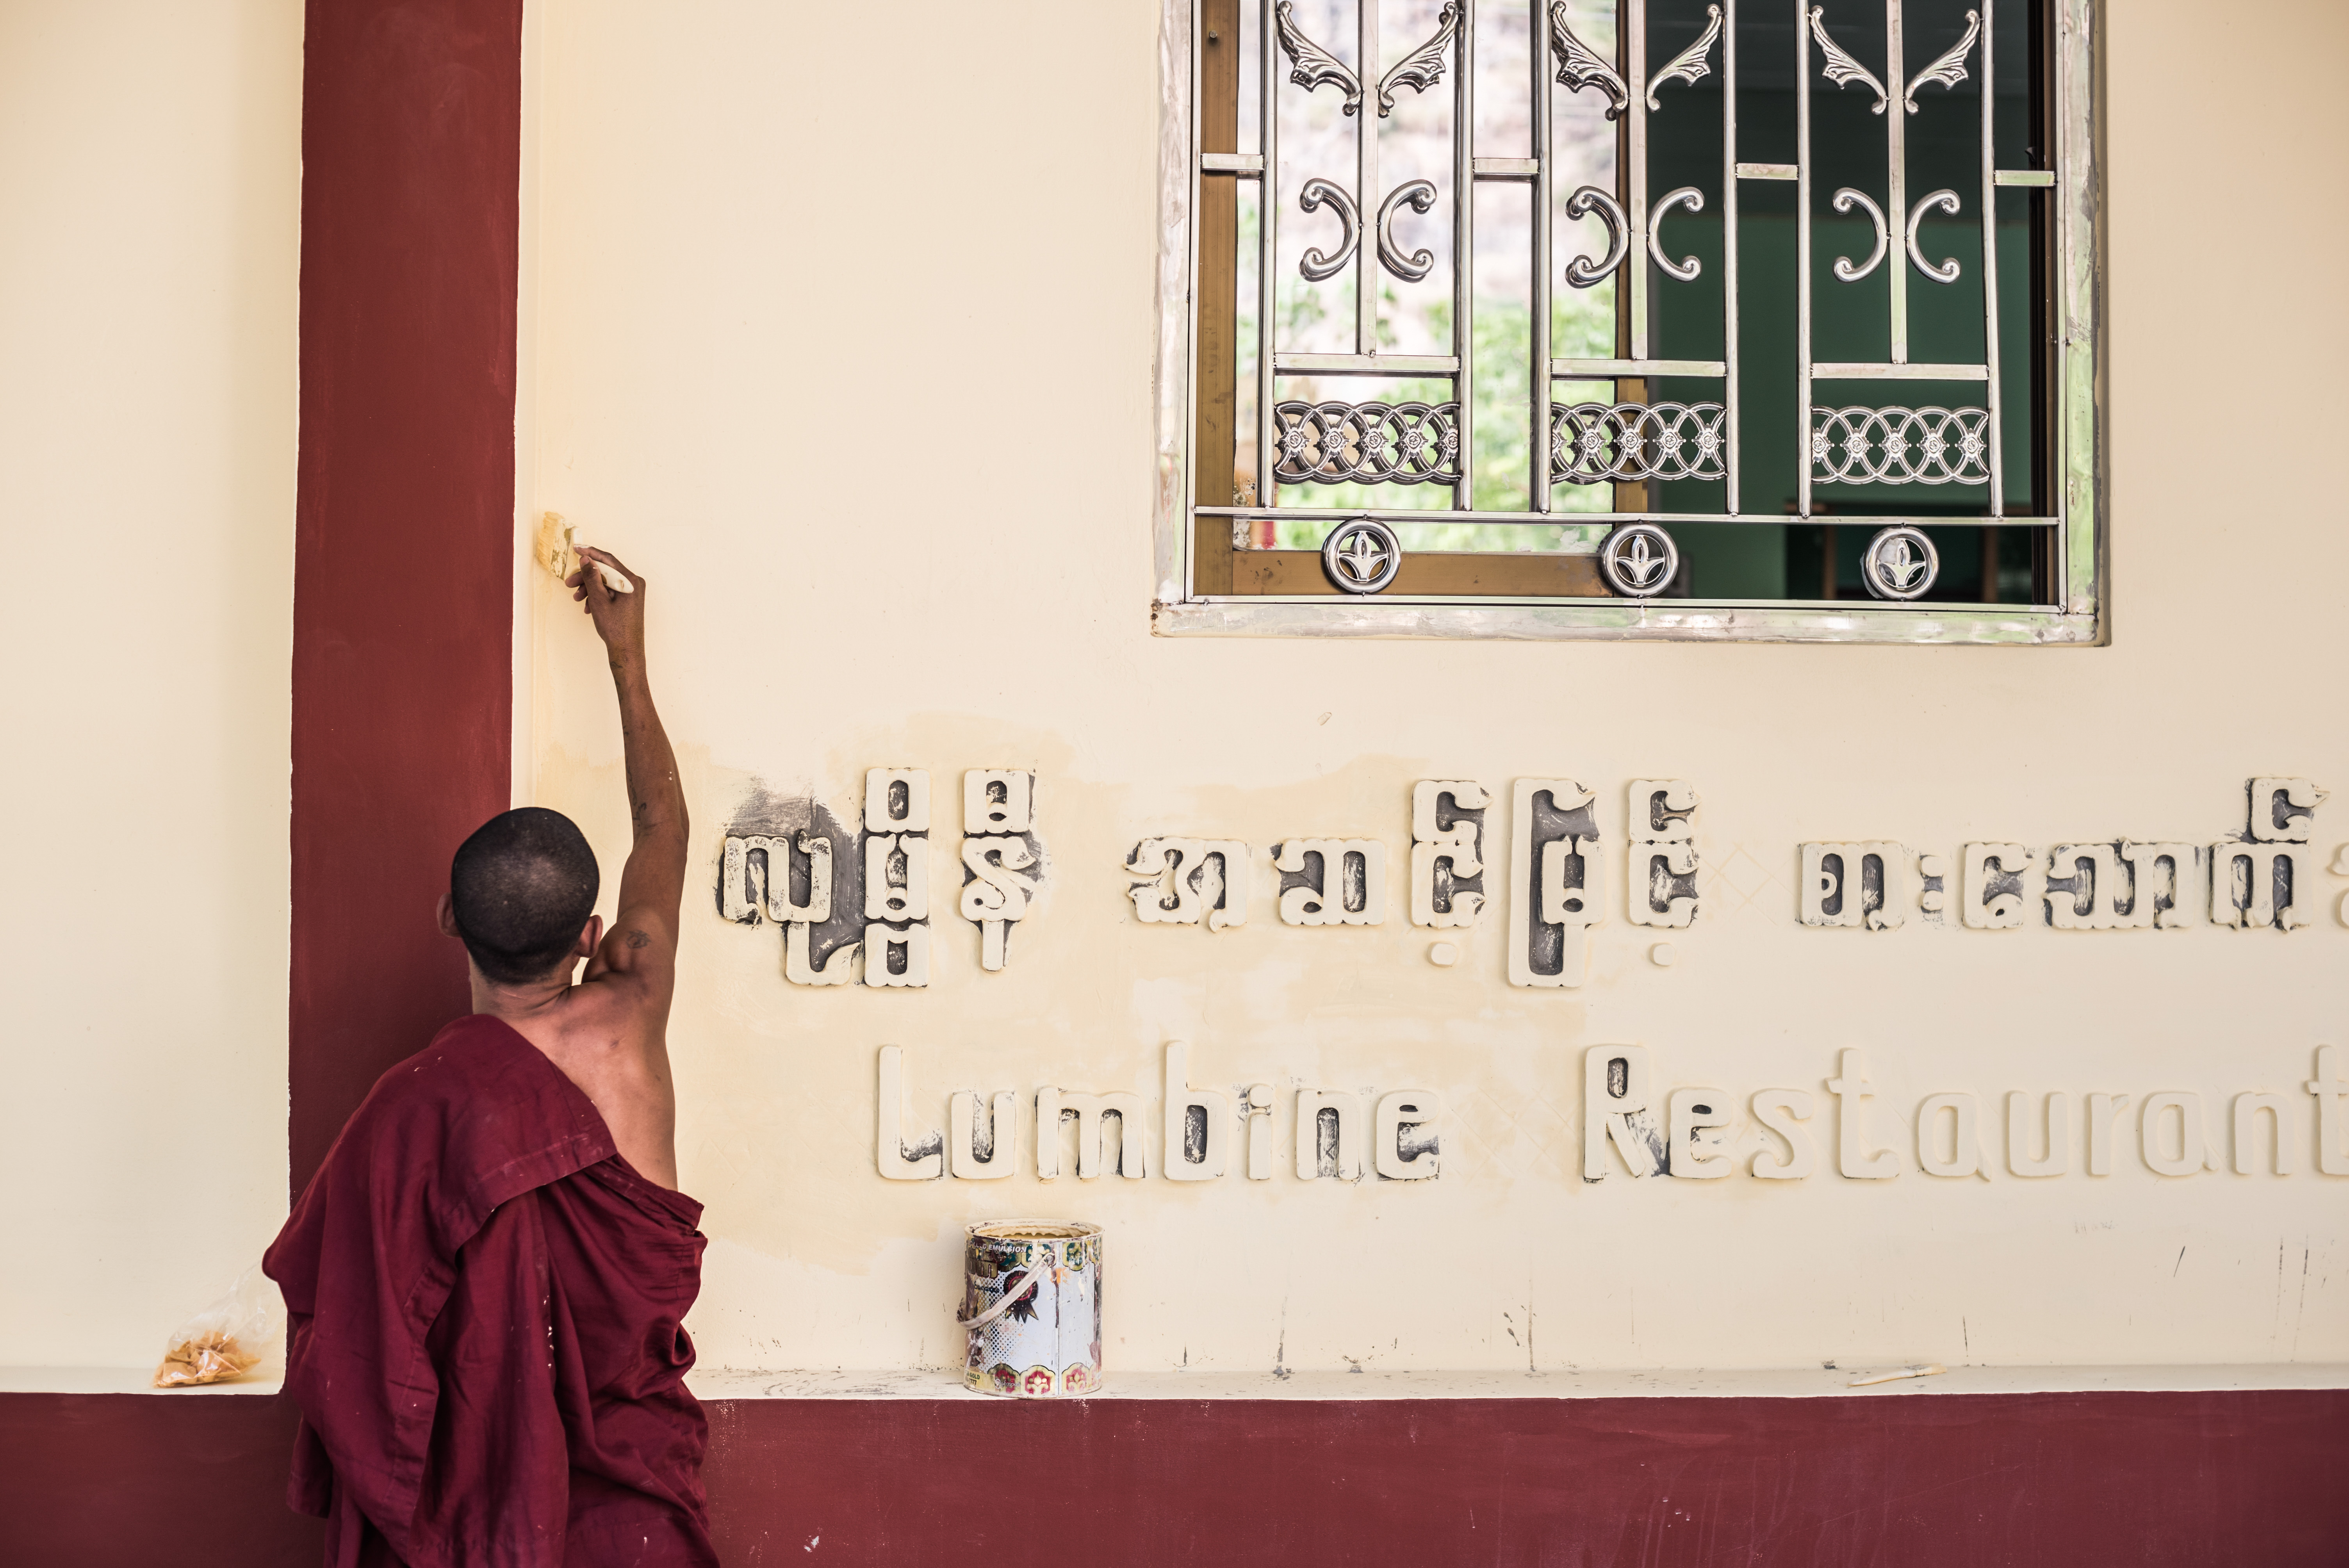 လုမ္ဗိနီ အဆင့်မြင့် စားသောက်
Lumbine Restaurant
EMULSION